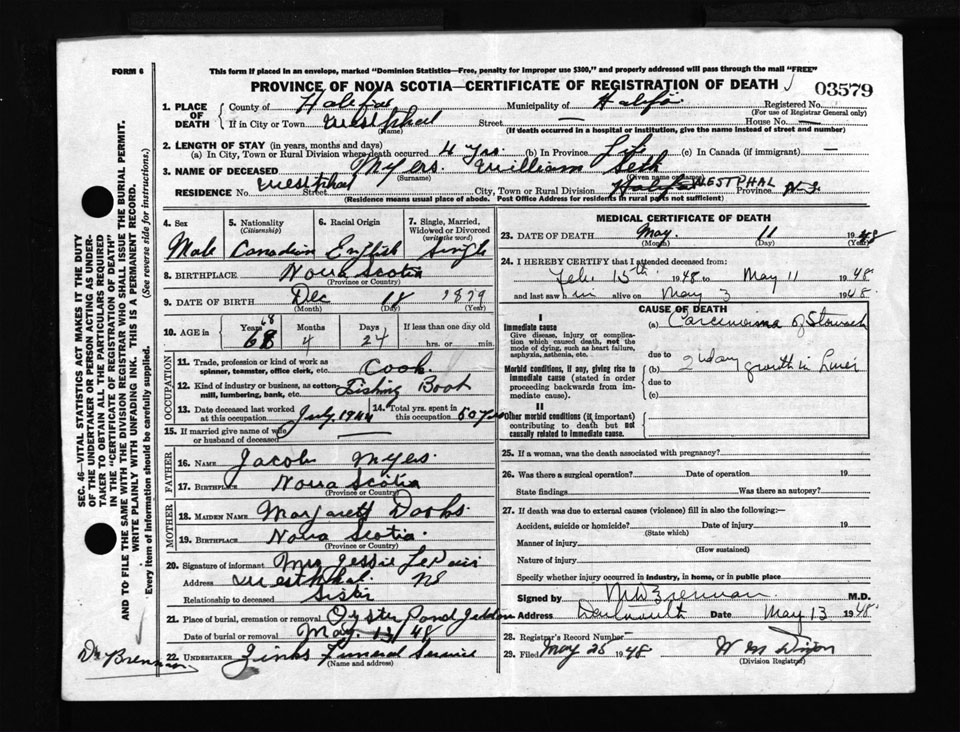 FORM 6
This form if placed in an envelope, marked "Dominion Statistics—Free, penalty for improper use $300," and properly addressed will pass through the mail "FREE"
PROVINCE OF NOVA SCOTIA—CERTIFICATE OF REGISTRATION OF DEATH
03579
1. PLACE OF DEATH
County of Halifax Municipality of Halifax Registered No.
(For use of Registrar General only)
If in City or Town Westphal Street — House No. —
(Name) (If death occurred in a hospital or institution, give the name instead of street and number)
2. LENGTH OF STAY (in years, months and days)
(a) In City, Town or Rural Division where death occurred 4 yrs. (b) In Province Life (c) In Canada (if immigrant) —
3. NAME OF DECEASED Myers William Seth
(Surname) (Given name or names)
RESIDENCE No. Westphal Street City, Town or Rural Division Halifax WESTPHAL Province N.S.
(Residence means usual place of abode. Post Office Address for residents in rural parts not sufficient)
4. Sex
5. Nationality (Citizenship)
6. Racial Origin
7. Single, Married, Widowed or Divorced (write the word)
Male Canadian English Single
8. BIRTHPLACE Nova Scotia
(Province or Country)
9. DATE OF BIRTH Dec 18 1879
(Month) (Day) (Year)
10. AGE in Years Months Days If less than one day old
68
68 4 24 hrs. or min.
OCCUPATION
11. Trade, profession or kind of work as spinner, teamster, office clerk, etc. Cook
12. Kind of industry or business, as cotton mill, lumbering, bank, etc. Fishing Boat
13. Date deceased last worked at this occupation July 1944
14. Total yrs. spent in this occupation 50 yrs
15. If married give name of wife or husband of deceased —
FATHER
16. NAME Jacob Myers
17. BIRTHPLACE Nova Scotia
(Province or Country)
MOTHER
18. MAIDEN NAME Margarett Dooks
19. BIRTHPLACE Nova Scotia
(Province or Country)
20. Signature of informant Mrs Jessie
Address Westphal NS
Relationship to deceased Sister
21. Place of burial, cremation or removal Oyster Pond Jeddore
Date of burial or removal May 13/48
22. UNDERTAKER Zinks Funeral Service
(Name and address)
MEDICAL CERTIFICATE OF DEATH
23. DATE OF DEATH May 11 1948
(Month) (Day) (Year)
24. I HEREBY CERTIFY that I attended deceased from:
Feb 15th 1948 to May 11 1948
and last saw him alive on May 3 1948.
CAUSE OF DEATH
I
Immediate cause
Give disease, injury or complication which caused death, not the mode of dying, such as heart failure, asphyxia, asthenia, etc.
(a) Carcinoma of Stomach
due to
Morbid conditions, if any, giving rise to immediate cause (stated in order proceeding backwards from immediate cause).
(b) 2nd ary growth in Liver
due to
(c)
II
Other morbid conditions (if important) contributing to death but not causally related to immediate cause.
25. If a woman, was the death associated with pregnancy?
26. Was there a surgical operation? Date of operation 19
State findings Was there an autopsy?
27. If death was due to external causes (violence) fill in also the following:—
Accident, suicide or homicide? Date of injury 19
(State which)
Manner of injury
(How sustained)
Nature of injury
Specify whether injury occurred in industry, in home, or in public place
Signed by Brennan M.D.
Address Dartmouth Date May 13 1948
28. Registrar's Record Number
29. Filed May 25 1948 W M Dixon
(Division Registrar)
SEC. 46—VITAL STATISTICS ACT MAKES IT THE DUTY OF THE UNDERTAKER OR PERSON ACTING AS UNDERTAKER TO OBTAIN ALL THE PARTICULARS REQUIRED IN THE "CERTIFICATE OF REGISTRATION OF DEATH" AND TO FILE THE SAME WITH THE DIVISION REGISTRAR WHO SHALL ISSUE THE BURIAL PERMIT.
WRITE PLAINLY WITH UNFADING INK. THIS IS A PERMANENT RECORD.
Every item of information should be carefully supplied. (See reverse side for instructions.)
Dr Brennan